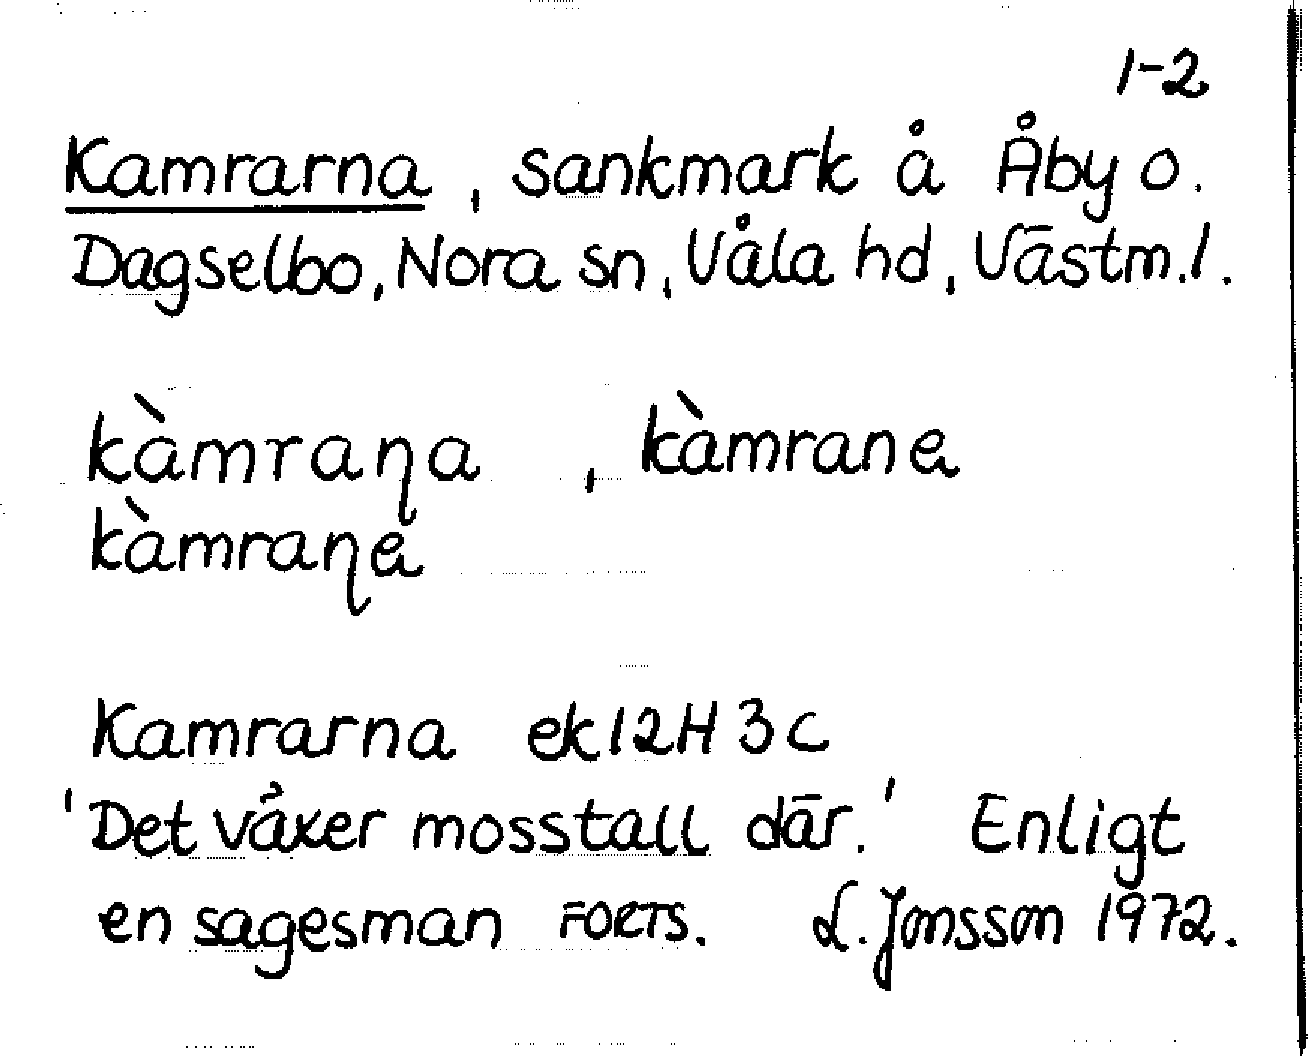 1-2
Kamrarna, sankmark å Åby o.
Dagselbo, Nora sn, Våla hd, Västm.l.
kàmraɳa, kàmrane
kàmraɳe
Kamrarna ek 12H 3c
'Det växer mosstall där.' Enligt
en sagesman FORTS. L. Jonsson 1972.